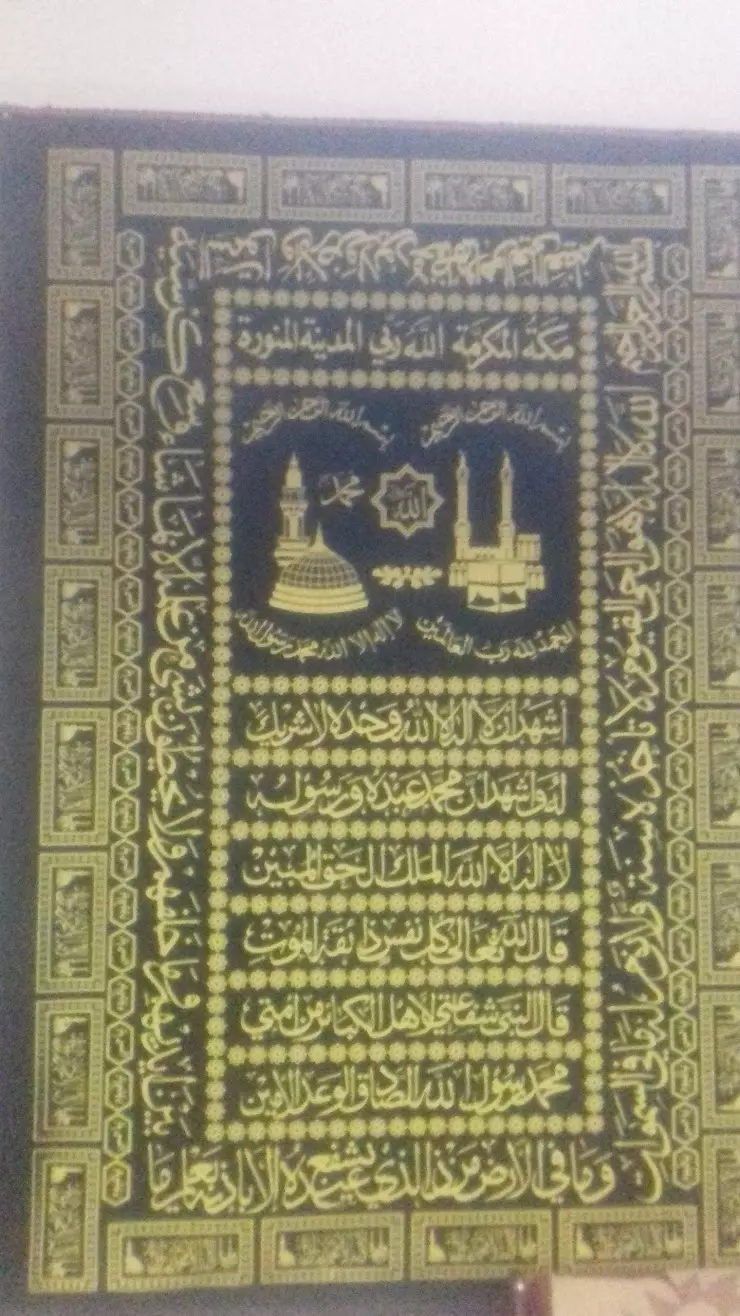 مكة المكرمة الله ربي المدينة المنورة
بسم الله الرحمن الرحيم
بسم الله الرحمن الرحيم
محمد
الله
الحمد لله رب العالمين
لا اله الا الله محمد رسول الله
اشهد ان لا اله الا الله وحده لا شريك
له واشهد ان محمد عبده ورسوله
لا اله الا الله الملك الحق المبين
قال الله تعالى كل نفس ذائقة الموت
قال النبي شفاعتي لاهل الكبائر من امتي
محمد رسول الله الصادق الوعد الامين
الله لا اله الا هو الحي القيوم لا تاخذه سنة ولا نوم له ما في السموات
وما في الارض من ذا الذي يشفع عنده الا باذنه يعلم ما
بين ايديهم وما خلفهم ولا يحيطون بشيء من علمه الا بما شاء وسع كرسيه